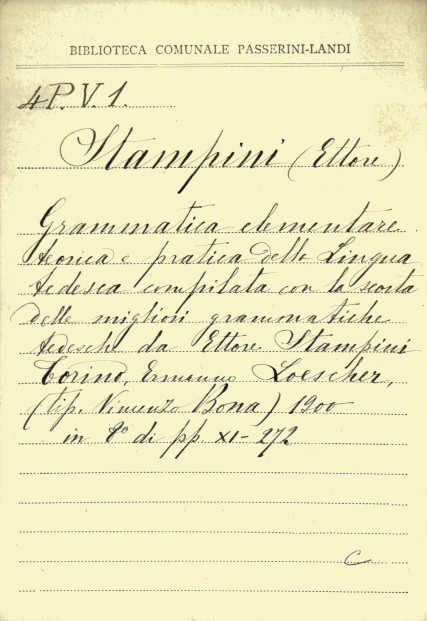 BIBLIOTECA COMUNALE PASSERINI-LANDI
4 P. V. 1.
Stampini (Ettore)
Grammatica elementare
teorica e pratica della Lingua
tedesca compilata con la scorta
delle migliori grammatiche
tedesche da Ettore Stampini
Torino, Ermanno Loescher,
(tip. Vincenzo Bona) 1900
in 8° di pp. XI-272
C